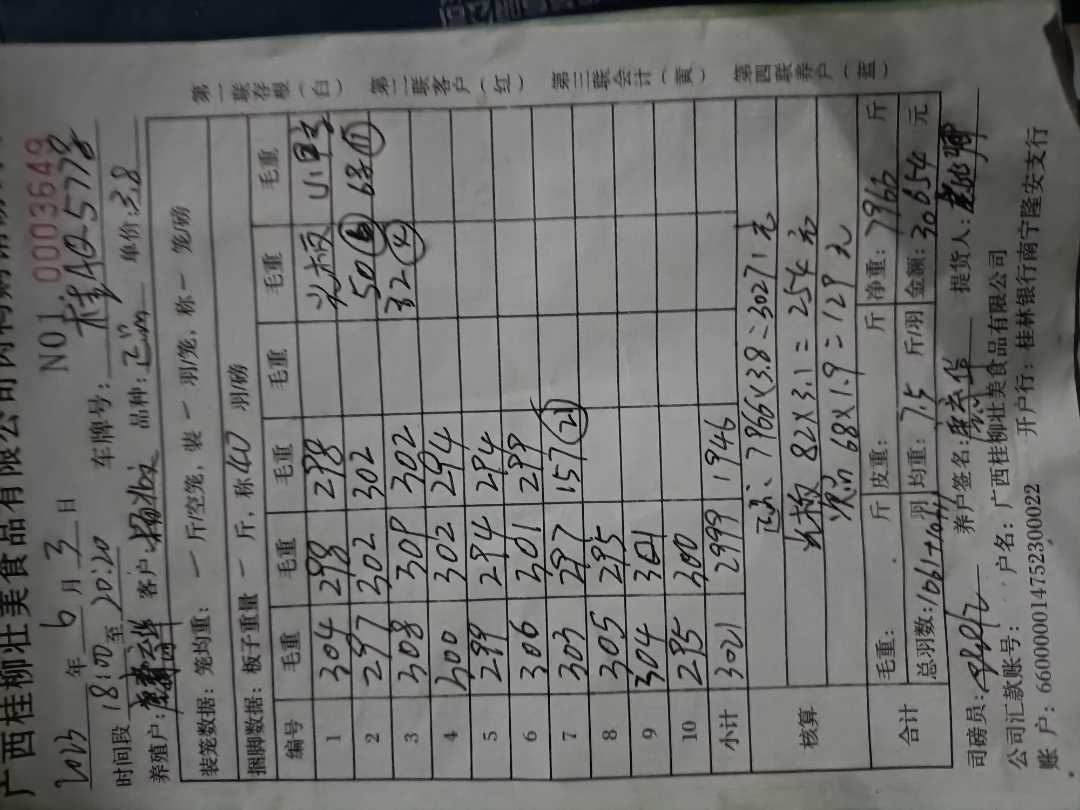 广西桂柳壮美食品有限公司
NO1 0003649
2023 年 6 月 3 日 车牌号: 桂AQ5778
时间段 18:00 至 20:20 品种: 单价: 3.8
养殖户: 客户:
装笼数据: 笼均重: 一 斤/空笼, 装 一 羽/笼, 称 一 笼/磅
捆脚数据: 板子重量 一 斤, 称 40 羽/磅
编号 毛重 毛重 毛重 毛重 毛重 毛重
1 304 298 298
2 297 302 302 50 68 11
3 308 309 302 32
4 300 302 294
5 299 294 294
6 306 301 299
7 303 297 157 21
8 305 295
9 304 301
10 295 300
小计 3021 2999 1946
核算 正品: 7966×3.8=30271元
82×3.1=254元
68×1.9=129元
合计 毛重: 斤 皮重: 斤 净重: 7966 斤
总羽数: 1061 羽 均重: 7.5 斤/羽 金额: 30654 元
司磅员: 养户签名: 提货人:
公司汇款账号: 户名: 广西桂柳壮美食品有限公司
账户: 660000014752300022 开户行: 桂林银行南宁隆安支行
第一联存根(白) 第二联客户(红) 第三联会计(黄) 第四联养户(蓝)